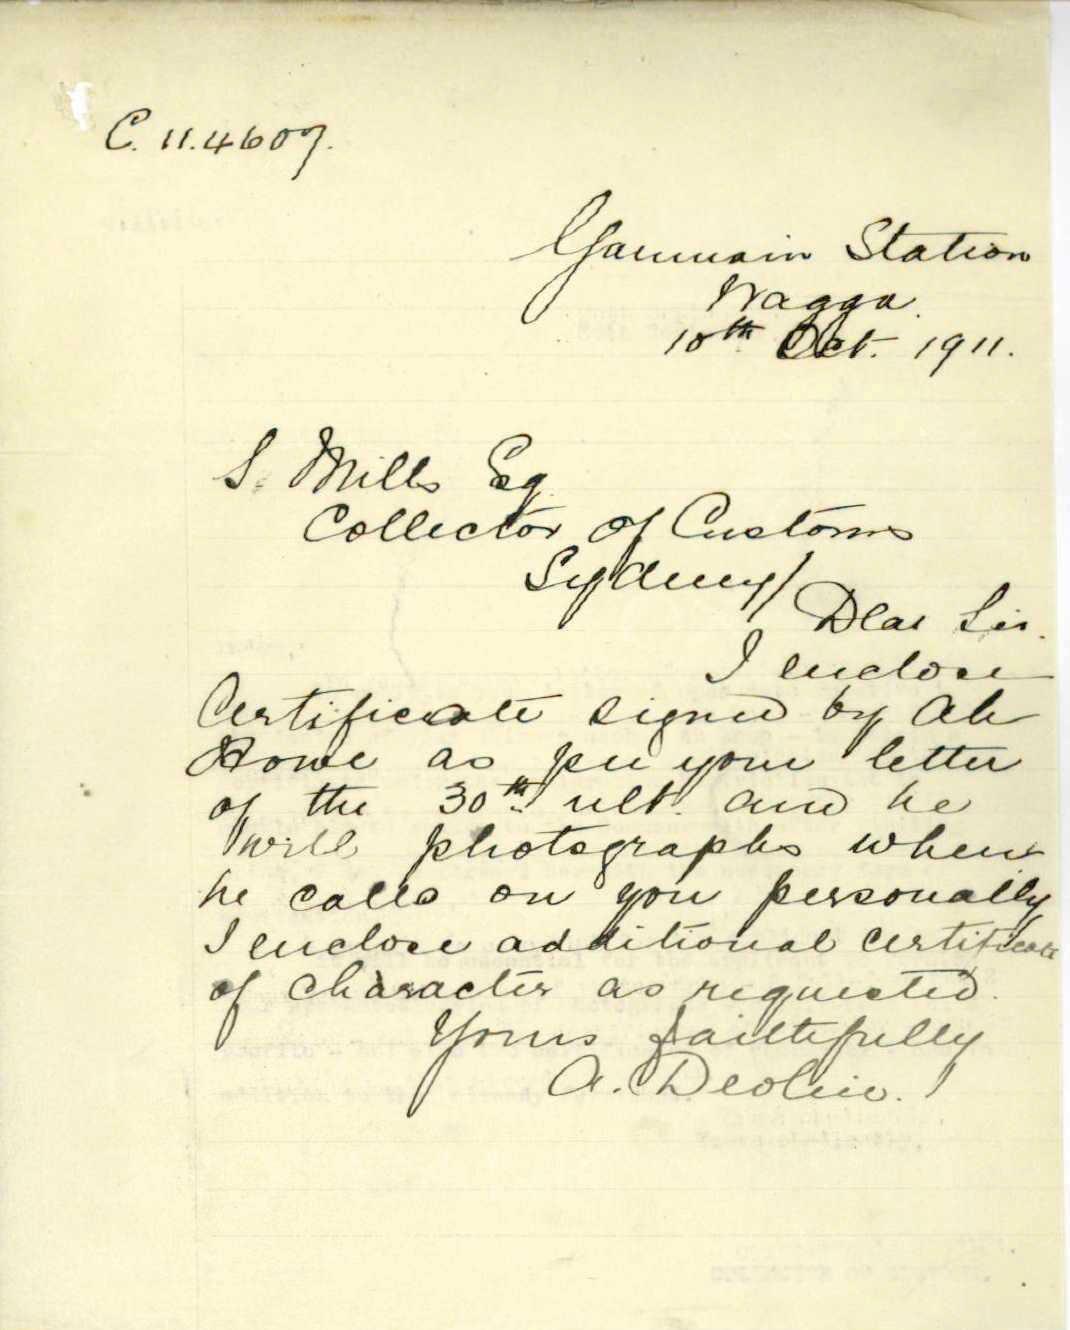 C. 11.4607.
Yarmmain Station
Wagga.
10th Oct. 1911.
S. Mills Esq.
Collector of Customs
Sydney/
Dear Sir.
I enclose
Certificate signed by Ah
Howe as per your letter
of the 30th ult. and he
will photographs when
he calls on you personally
I enclose additional certificate
of character as requested.
Yours faithfully
A. Devlin.